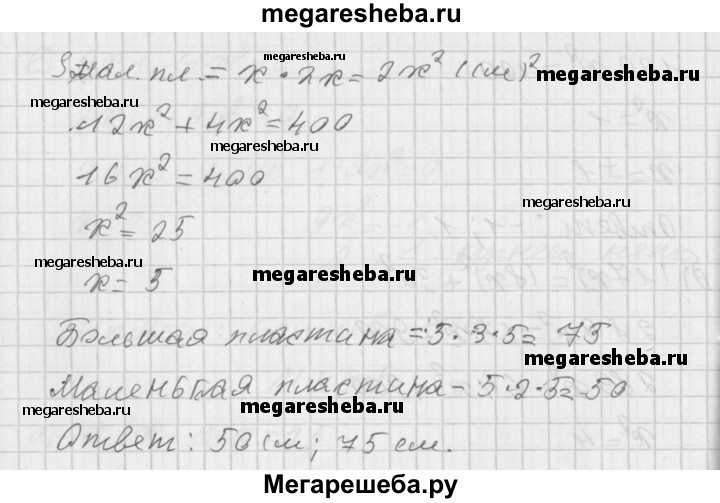 megaresheba.ru
megaresheba.ru
Sмал. пл. = x · 2x = 2x² (см)²
megaresheba.ru
megaresheba.ru
12x² + 4x² = 400
megaresheba.ru
16x² = 400
megaresheba.ru
x² = 25
megaresheba.ru
megaresheba.ru
x = 5
Большая пластина = 5 · 3 · 5 = 75
megaresheba.ru
Маленькая пластина - 5 · 2 · 5 = 50
megaresheba.ru
megaresheba.ru
Ответ: 50 см; 75 см.
megaresheba.ru
Мегарешеба.ру